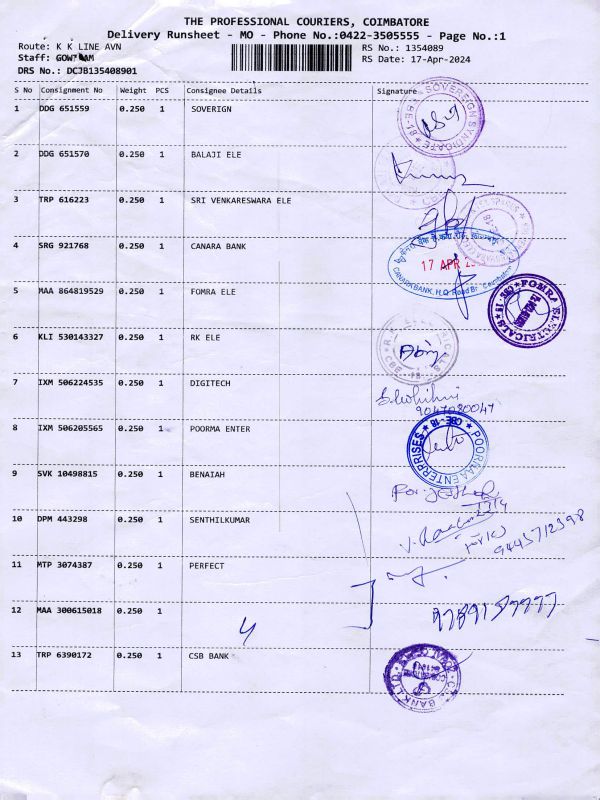 THE PROFESSIONAL COURIERS, COIMBATORE
Delivery Runsheet - MO - Phone No.:0422-3505555 - Page No.:1
Route: K K LINE AVN
RS No.: 1354089
Staff:
RS Date: 17-Apr-2024
DRS No.: DCJB135408901
S No Consignment No Weight PCS Consignee Details Signature
1 DDG 651559 0.250 1 SOVERIGN
SOVEREIGN SYNDICATE
2 DDG 651570 0.250 1 BALAJI ELE
3 TRP 616223 0.250 1 SRI VENKARESWARA ELE
4 SRG 921768 0.250 1 CANARA BANK
17 APR
CANARA BANK, H.O. Road Br. Coimbatore
5 MAA 864819529 0.250 1 FOMRA ELE
FOMRA ELECTRICALS CBE-18
6 KLI 530143327 0.250 1 RK ELE
7 IXM 506224535 0.250 1 DIGITECH
9047080047
8 IXM 506205565 0.250 1 POORMA ENTER
POORMA ENTERPRISES CBE-18
9 SVK 10498815 0.250 1 BENAIAH
10 DPM 443298 0.250 1 SENTHILKUMAR
9443712398
11 MTP 3074387 0.250 1 PERFECT
12 MAA 300615018 0.250 1
4
13 TRP 6390172 0.250 1 CSB BANK
BANK LTD